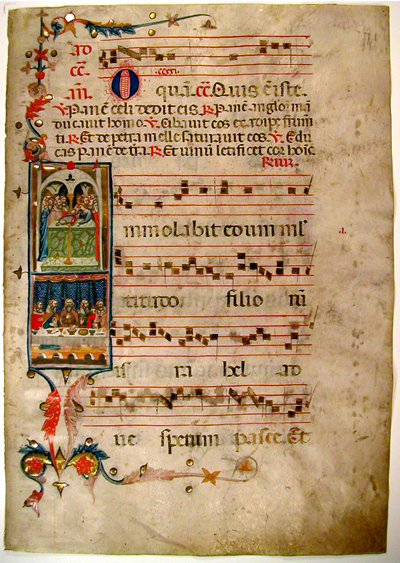 ad
O quā. Quis ē iste
℣. Panē celi dedit eis ℟. Panē angloꝝ mā
ducauit homo ℣. Cibauit eos ex adipe frumen
ti ℟. Et de petra melle saturauit eos ℣. Edu
cas panē de tra ℟. Et uinū letifi cet cor hoīs
mmolabit edum ml
titudo filio rū
isra hel ad
ue sperum pasce. Et